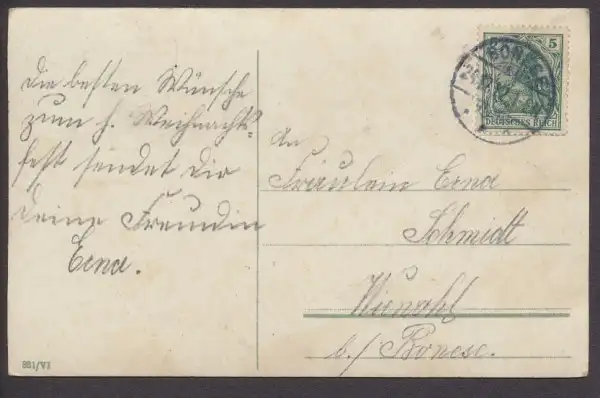 Die besten Wünsche
zum h. Weihnachts-
fest sendet Dir
Deine Freundin
Erna.
An
Fräulein Erna
Schmidt
b./ Bonese.
5
DEUTSCHES REICH
BONESE
321/VI